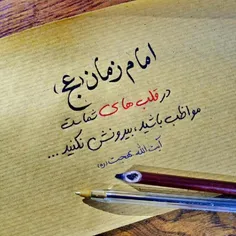 امام زمان (عج)
در قلب های شماست
مواظب باشید، بیرونش نکنید ...
آیت الله بهجت (ره)